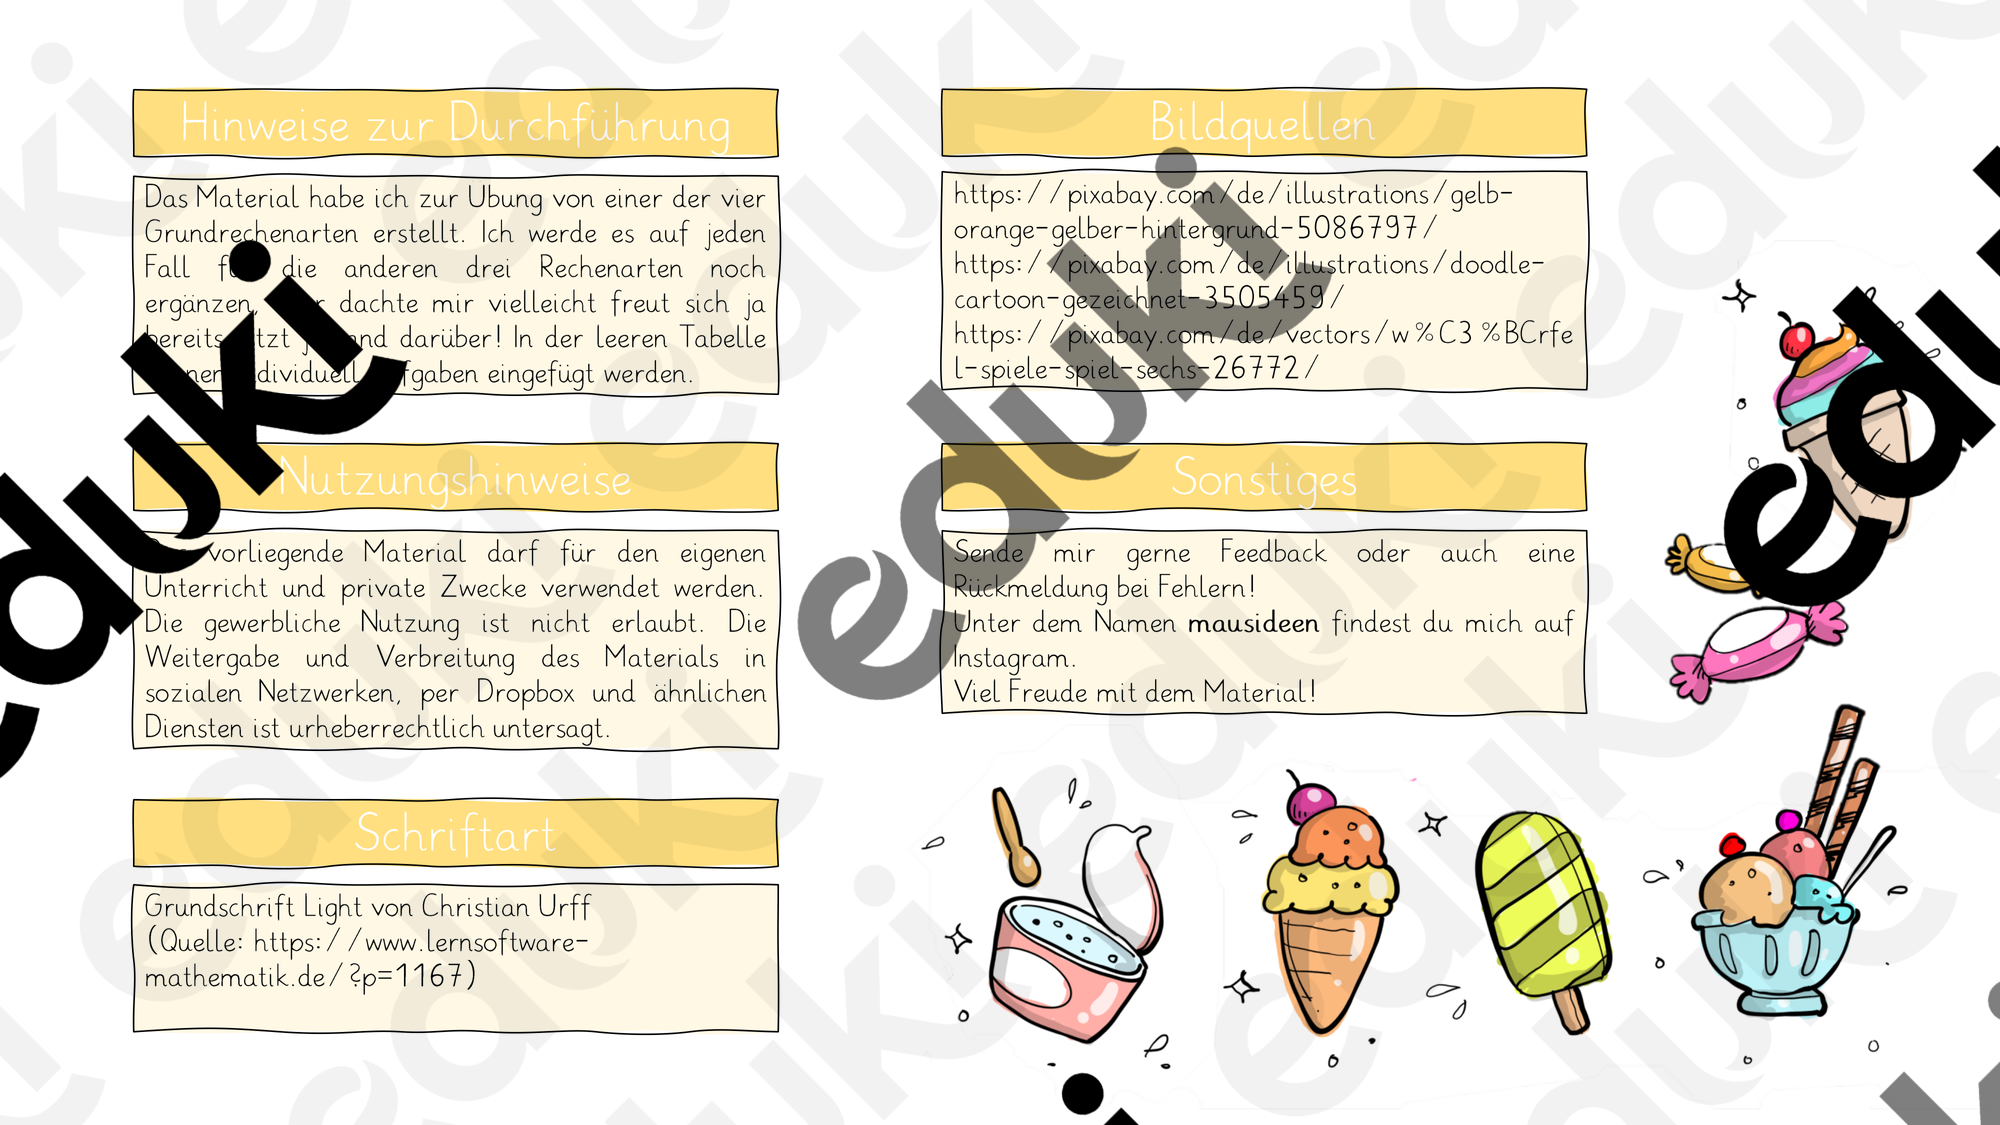 Hinweise zur Durchführung
Das Material habe ich zur Übung von einer der vier
Grundrechenarten erstellt. Ich werde es auf jeden
Fall die anderen drei Rechenarten noch
ergänzen, dachte mir vielleicht freut sich ja
bereits darüber! In der leeren Tabelle
eingefügt werden.
Nutzungshinweise
vorliegende Material darf für den eigenen
Unterricht und private Zwecke verwendet werden.
Die gewerbliche Nutzung ist nicht erlaubt. Die
Weitergabe und Verbreitung des Materials in
sozialen Netzwerken, per Dropbox und ähnlichen
Diensten ist urheberrechtlich untersagt.
Schriftart
Grundschrift Light von Christian Urff
(Quelle: https://www.lernsoftware-
mathematik.de/?p=1167)
Bildquellen
https://pixabay.com/de/illustrations/gelb-
orange-gelber-hintergrund-5086797/
https://pixabay.com/de/illustrations/doodle-
cartoon-gezeichnet-3505459/
https://pixabay.com/de/vectors/w%C3%BCrfe
l-spiele-spiel-sechs-26772/
Sonstiges
Sende mir gerne Feedback oder auch eine
Rückmeldung bei Fehlern!
Unter dem Namen mausideen findest du mich auf
Instagram.
Viel Freude mit dem Material!
eduki
eduki
eduki